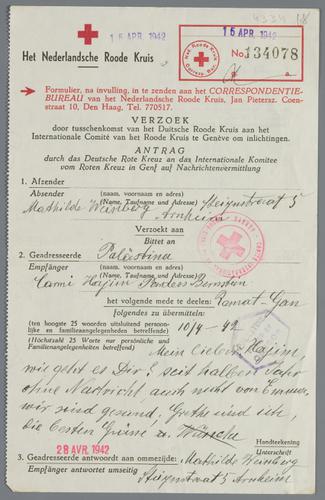 4334 18
15 APR. 1942
15 APR. 1942
Het Nederlandsche Roode Kruis
Het Roode Kruis
No. 134078
Formulier, na invulling, in te zenden aan het CORRESPONDENTIE-
BUREAU van het Nederlandsche Roode Kruis, Jan Pietersz. Coen-
straat 10, Den Haag, Tel. 770517.
VERZOEK
door tusschenkomst van het Duitsche Roode Kruis aan het
Internationale Comité van het Roode Kruis te Genève om inlichtingen.
ANTRAG
durch das Deutsche Rote Kreuz an das Internationale Komitee
vom Roten Kreuz in Genf auf Nachrichtenvermittlung
1. Afzender
Absender
(naam, voornaam en adres)
(Name, Taufname und Adresse)
Steijnstraat 5
Mathilde Weinberg Arnheim
Verzoekt aan
Bittet an
2. Geadresseerde Palästina
Empfänger
(naam, voornaam en adres)
(Name, Taufname und Adresse)
Hajim Bernstein
het volgende mede te deelen: Ramat-Gan
folgendes zu übermitteln:
(ten hoogste 25 woorden uitsluitend persoon-
lijke en familieaangelegenheden betreffend)
10/4-42
(Höchstzahl 25 Worte nur persönliche und
Familienangelegenheiten betreffend)
Mein lieber Hajim,
wie geht es Dir? seit halbem Jahr
ohne Nachricht auch nicht von
wir sind gesund. Grethe und ich,
die besten Grüsse u. Wünsche
28 AVR. 1942
Handteekening
Unterschrift
3. Geadresseerde antwoord aan ommezijde:
Empfänger antwortet umseitig
Mathilde Weinberg
Steijnstraat 5 Arnheim